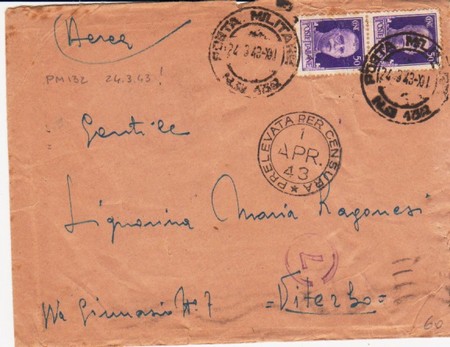 (Aerea)
POSTA MILITARE
24 3 43-XXI
POSTA MILITARE
24 3 43-XXI
50
50
PM 132 24.3.43!
Gentile
PRELEVATA PER CENSURA
1
APR.
43
Signorina Maria Ragonesi
Via Ginnasio N° 7 =Viterbo=
60